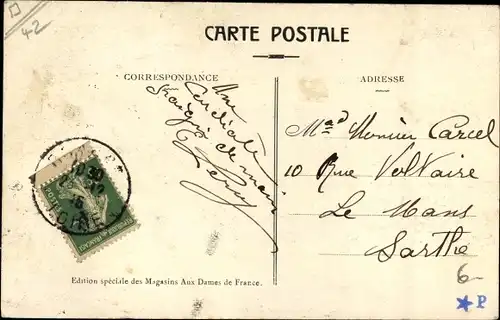 42
CARTE POSTALE
CORRESPONDANCE
ADRESSE
Une
Cordiale
Poignée de main
M^ad Monier Carcel
10 Rue Voltaire
Le Mans
Sarthe
6-
★P
Edition spéciale des Magasins Aux Dames de France.